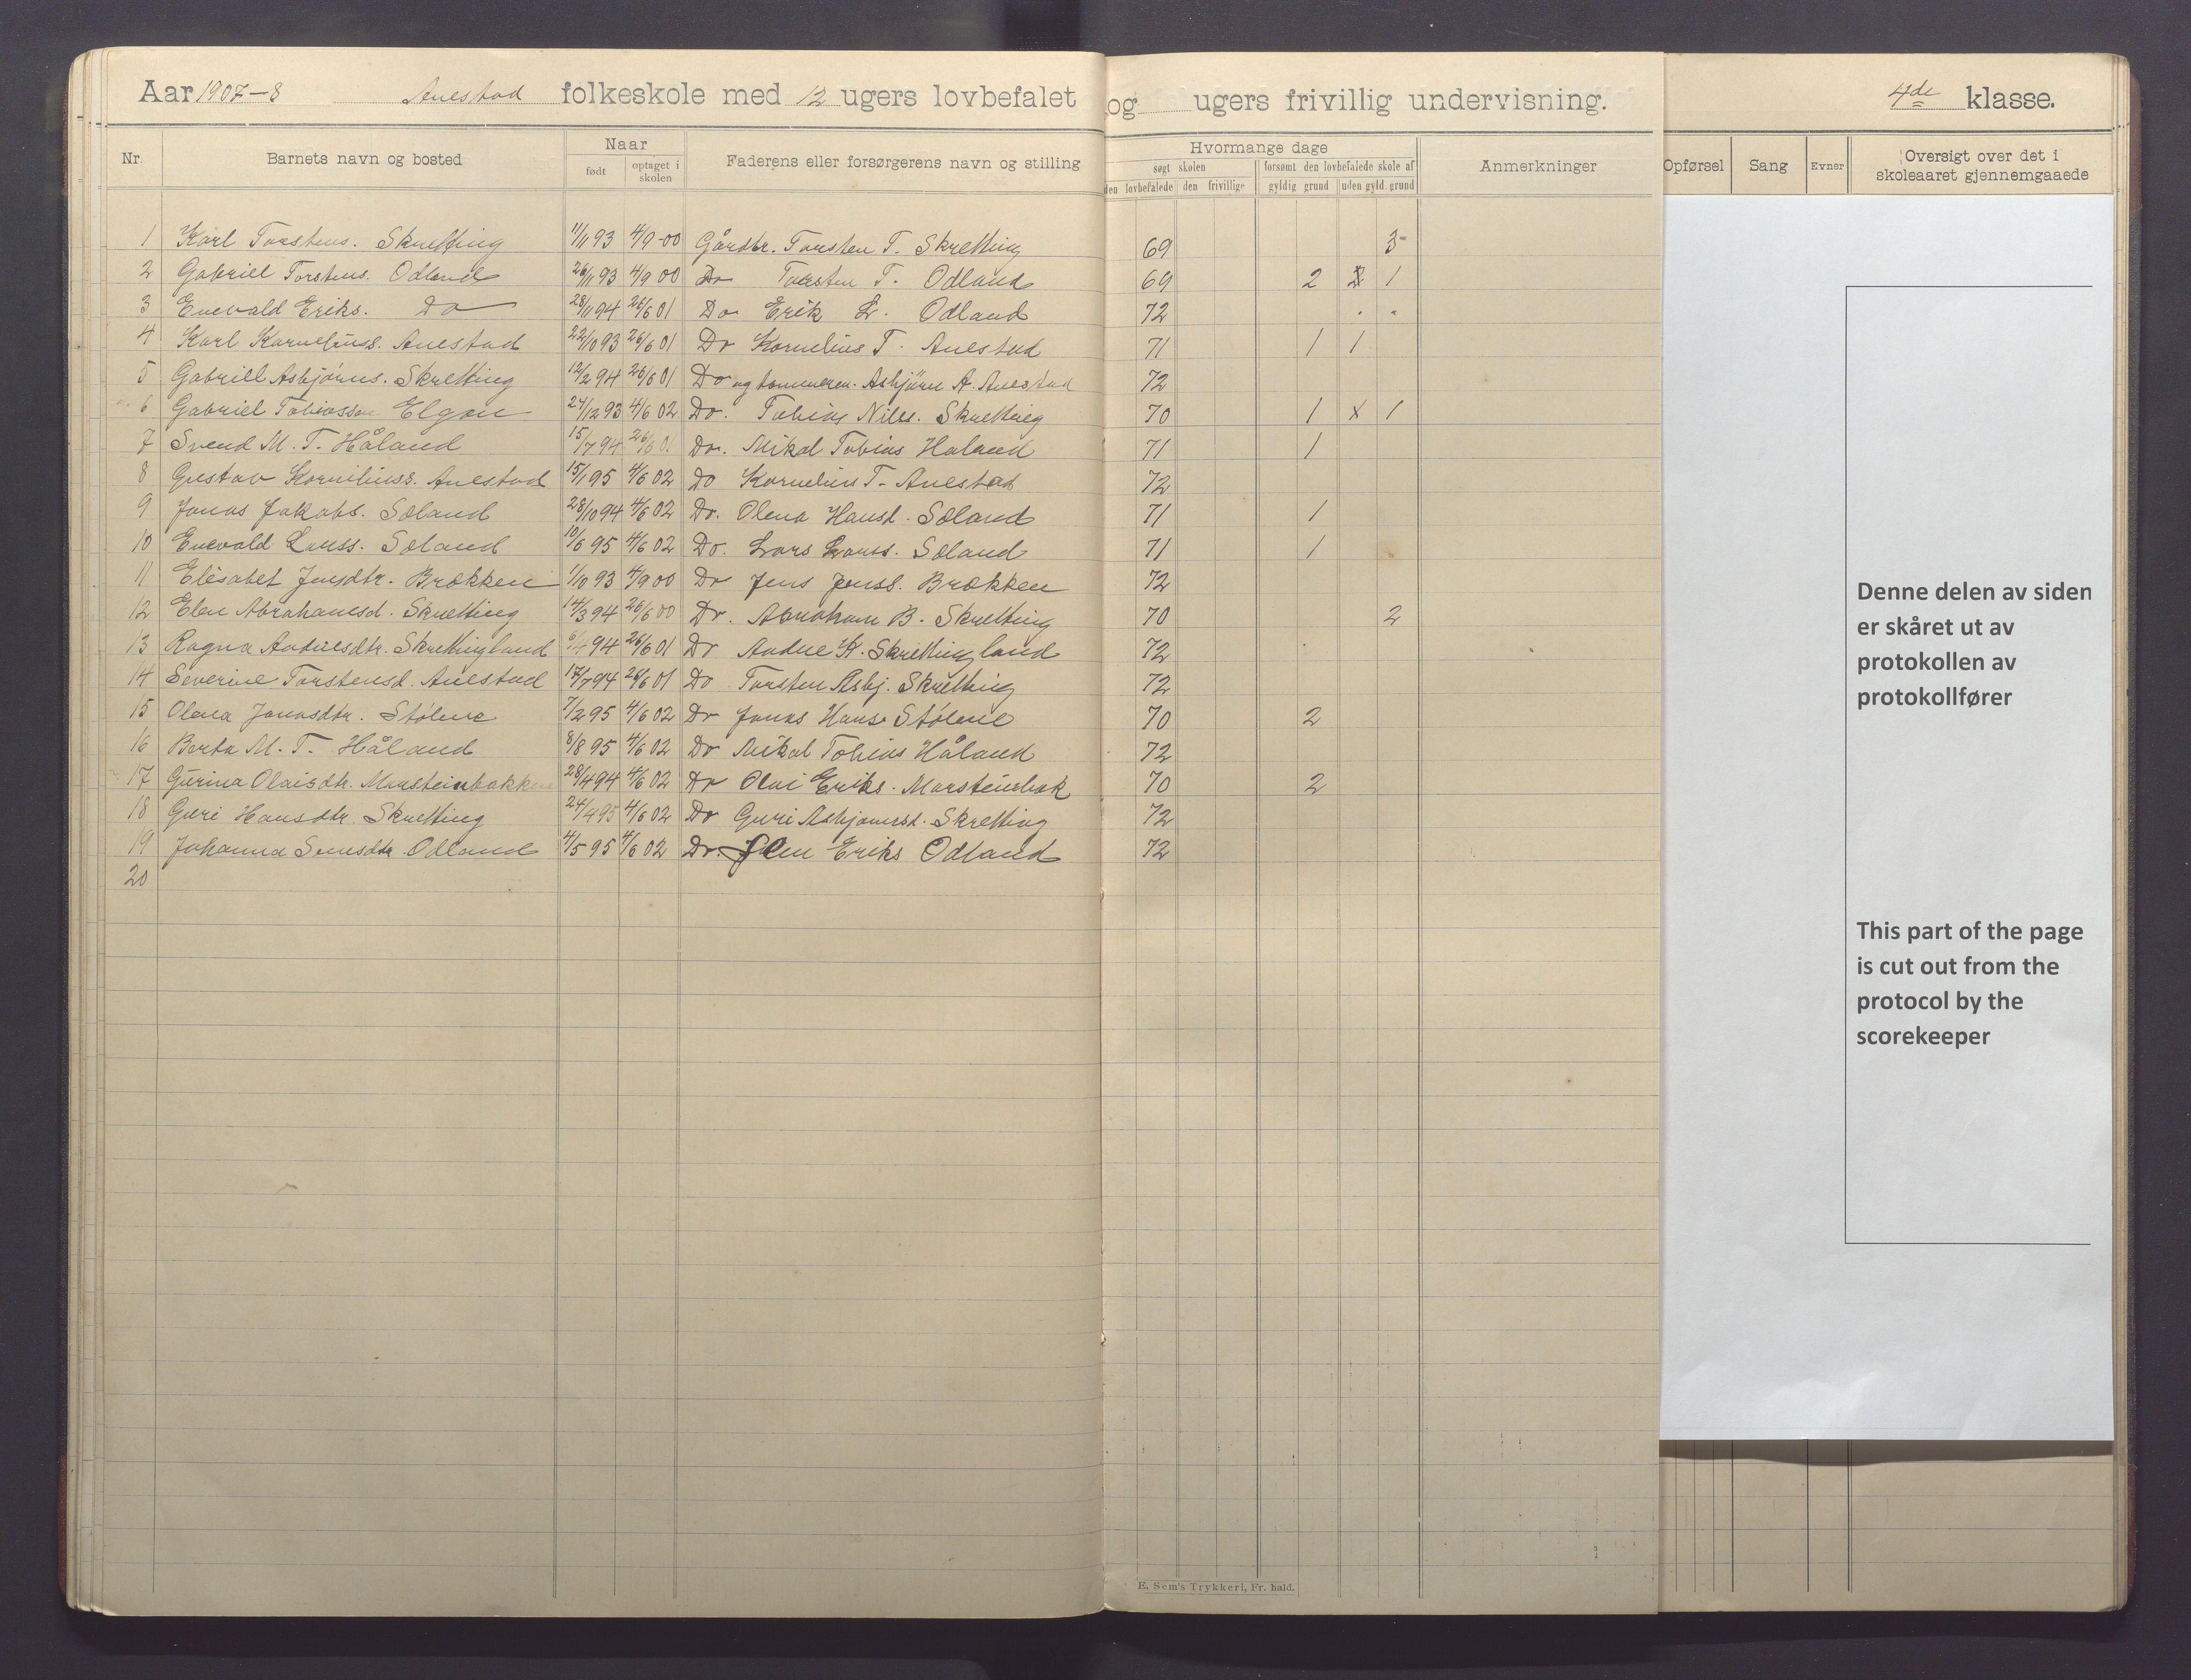 Aar 1907-8 Auestad folkeskole med 12 ugers lovbefalet og ugers frivillig undervisning. 4de klasse.
Nr. Barnets navn og bosted Naar Faderens eller forsørgerens navn og stilling Hvormange dage Anmerkninger Opførsel Sang Evner Oversigt over det i skoleaaret gjennemgaaede
født optaget i skolen søgt skolen forsømt den lovbefalede skole af
den lovbefalede den frivillige gyldig grund uden gyld. grund
1 Karl Torstens. Skretting 11/11 93 4/9-00 Gårdbr. Torsten T. Skretting 69 3
2 Gabriel Torstens. Odland 26/11 93 4/9 00 Do Torsten T. Odland 69 2 1
3 Enevald Eriks. Do 28/11 94 26/6 01 Do Erik L. Odland 72
4 Karl Korneliuss. Auestad 22/10 93 26/6 01 Do Kornelius T. Auestad 71 1 1
5 Gabriell Asbjørns. Skretting 12/2 94 26/6 01 Do og tømmerm. Asbjørn A. Auestad 72
6 Gabriel Tobiasson Elgan 24/12 93 4/6 02 Do. Tobias Nils. Skretting 70 1 x 1
7 Svend M. T. Håland 15/7 94 26/6 01 Do. Mikal Tobias Haland 71 1
8 Gustav Korniliuss. Auestad 15/1 95 4/6 02 Do Kornelius T. Auestad 72
9 Jonas Jakobs. Søland 28/10 94 4/6 02 Do. Olena Hansd. Søland 71 1
10 Enevald Larss. Søland 10/6 95 4/6 02 Do. Lars Larss. Søland 71 1
11 Elisabet Jensdtr. Brækken 1/10 93 4/9 00 Do Jens Jenss. Brækken 72
12 Elen Abrahamsd. Skretting 14/3 94 26/6 00 Do. Abraham B. Skretting 70 2
13 Ragna Andresdtr. Skrettingland 6/4 94 26/6 01 Do Andre K. Skrettingland 72
14 Severine Torstensd. Auestad 17/7 94 26/6 01 Do Torsten Asbj. Skretting 72
15 Olena Jonasdtr. Stølene 7/2 95 4/6 02 Do Jonas Hans. Stølene 70 2
16 Berta M. T. Håland 8/8 95 4/6 02 Do Mikal Tobias Håland 72
17 Gurina Olaisdtr. Marsteinbakken 28/4 94 4/6 02 Do Olai Eriks. Marsteinbak 70 2
18 Guri Hansdtr. Skretting 24/4 95 4/6 02 Do Guri Asbjørnsd. Skretting 72
19 Johanna Sensdtr. Odland 4/5 95 4/6 02 Do. Eriks Odland 72
20
Denne delen av siden
er skåret ut av
protokollen av
protokollfører
This part of the page
is cut out from the
protocol by the
scorekeeper
E. Sem's Trykkeri, Fr. hald.